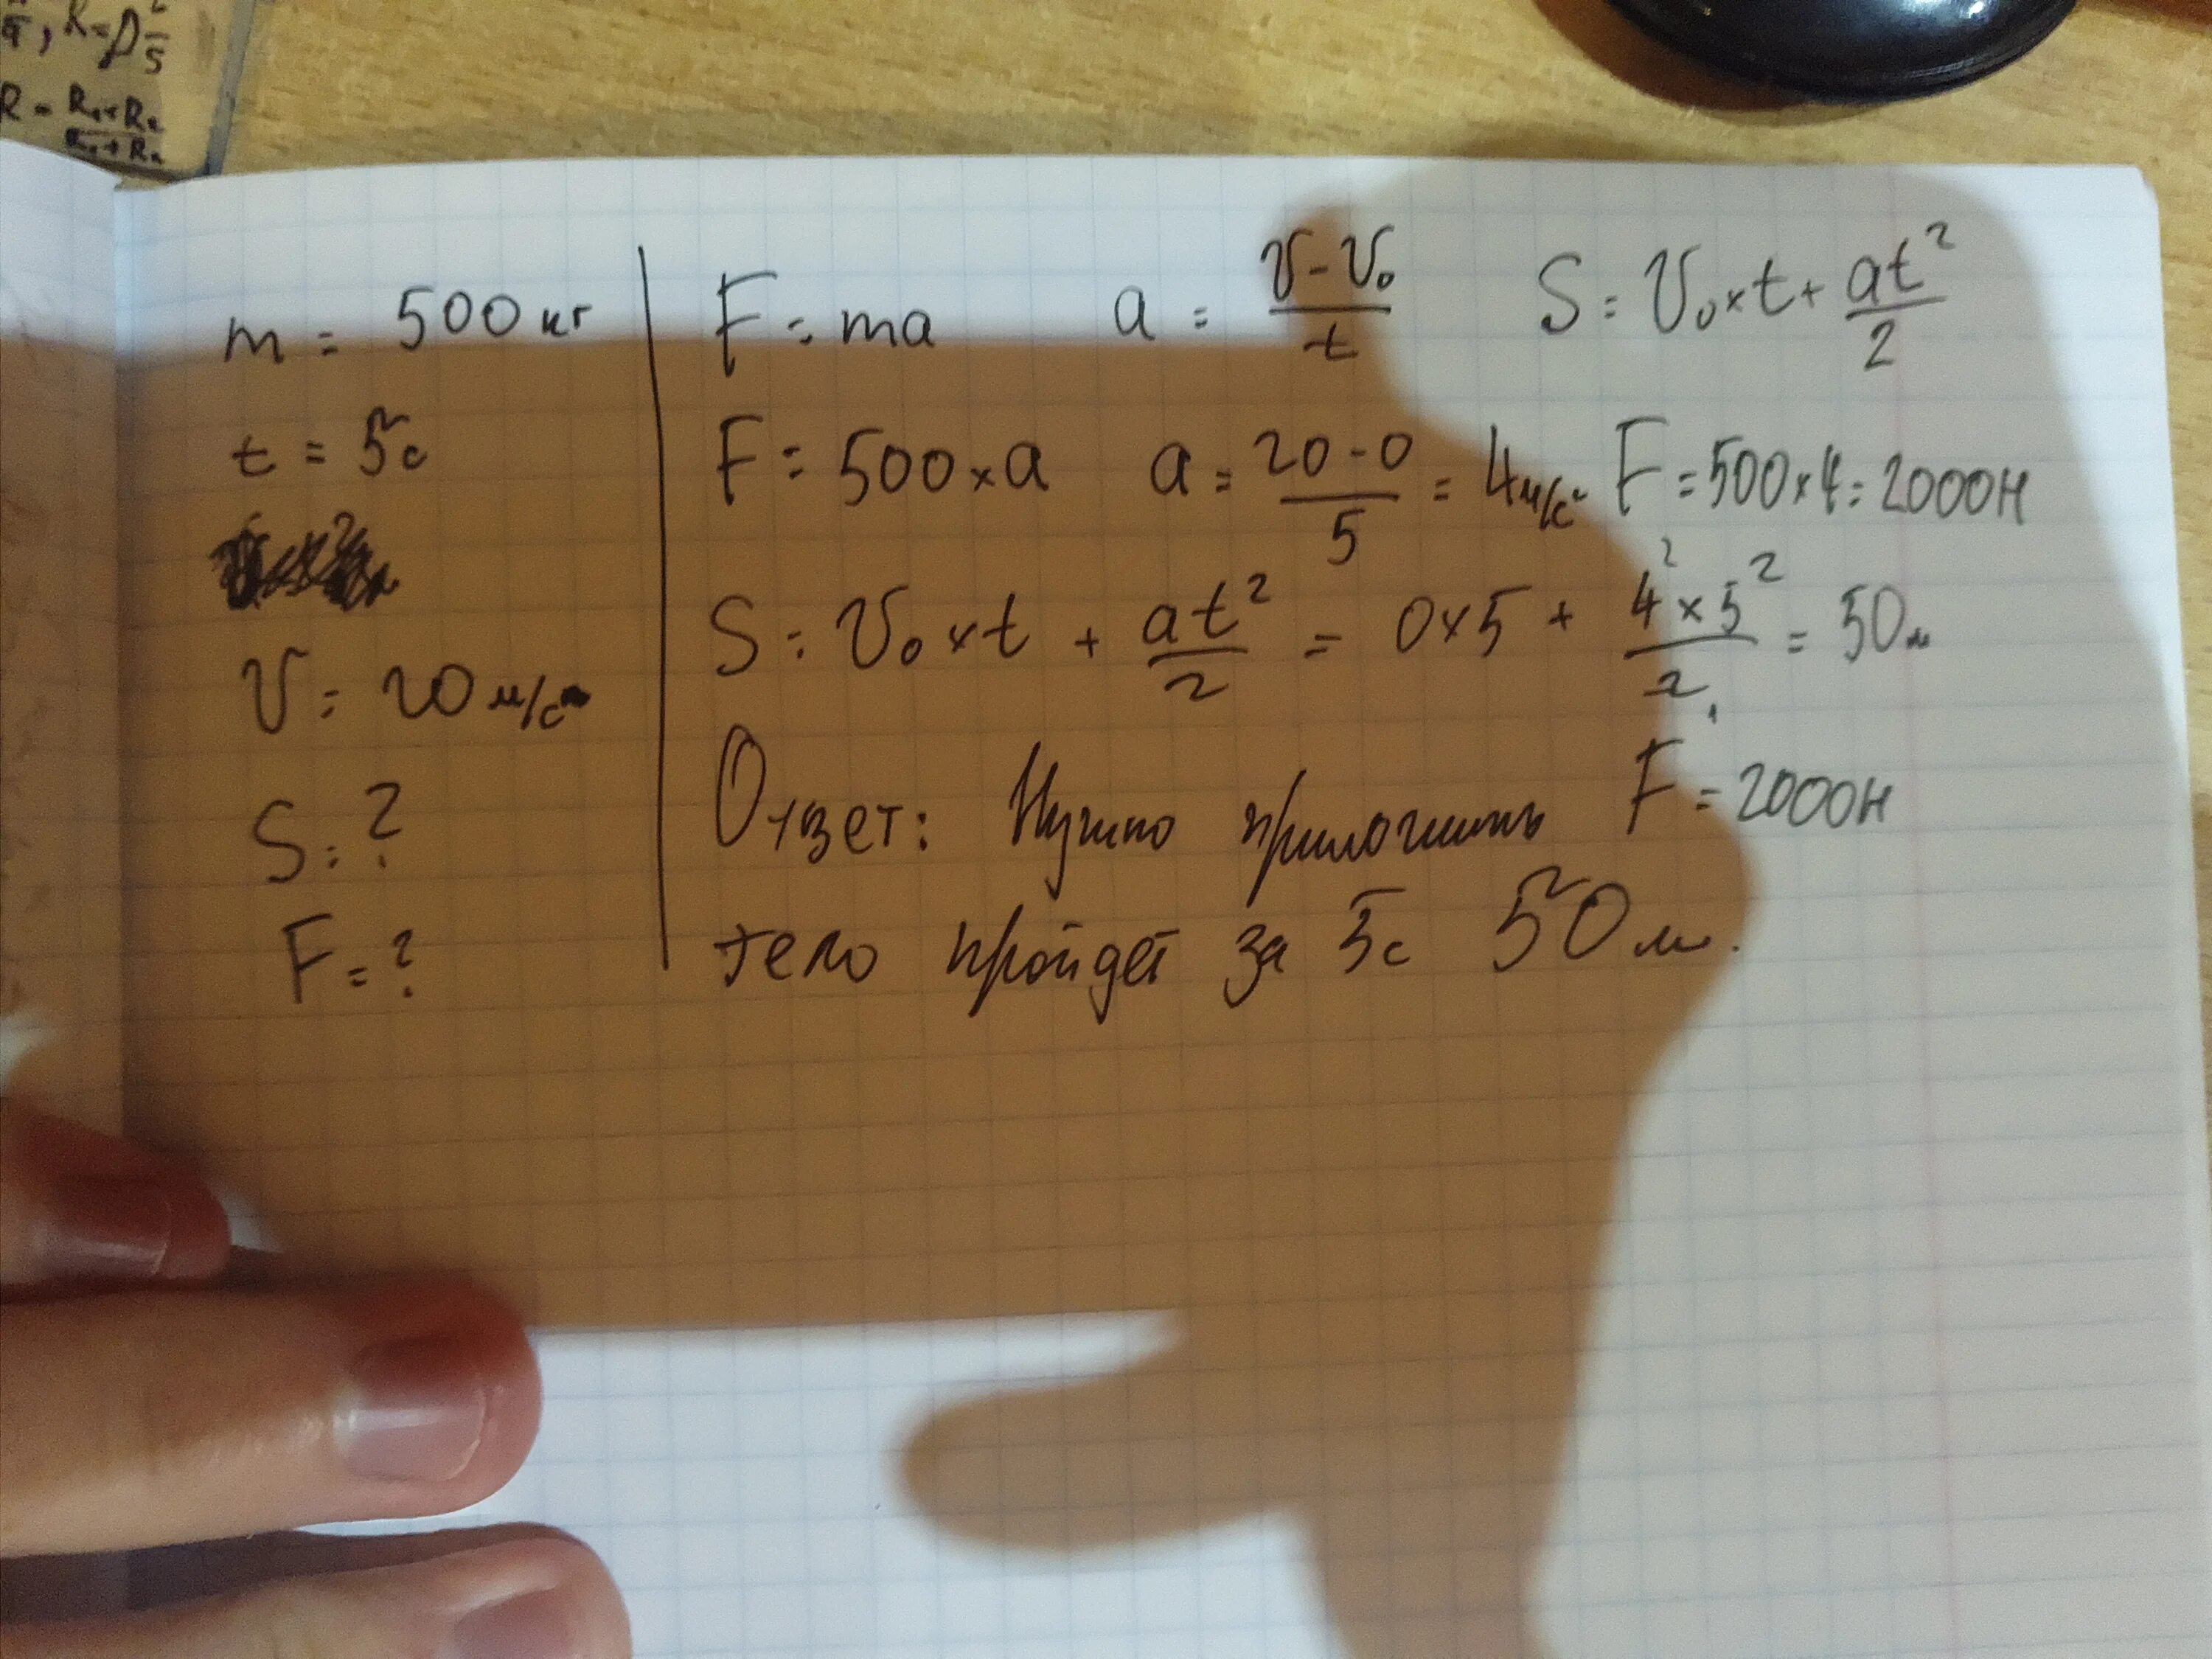 R=ρ
5
R = R₁×R₂
R₁+R₂
m = 500 кг
t = 5с
V = 20 м/с
S = ?
F = ?
F = ma a = V-V₀/t S = V₀×t + at²/2
F = 500×a a = 20-0/5 = 4м/с² F = 500×4 = 2000Н
S = V₀×t + at²/2 = 0×5 + 4²×5²/2 = 50м
Ответ: Нужно приложить F = 2000Н
тело пройдет за 5с 50м.